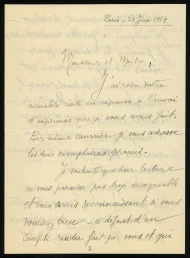 Paris, 24 Juin 1914
Monsieur et Maître,
J'ai reçu votre
aimable carte en réponse à l'envoi
d'imprimés que je vous avais fait.
Par même courrier je vous adresse
les deux exemplaires promis.
Je souhaite que leur lecture
ne vous paraisse pas trop désagréable
et vous serais reconnaissant si vous
vouliez bien — à défaut d'un
compte rendu fait par vous et qui